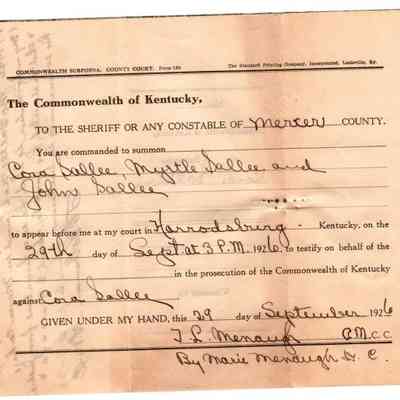 COMMONWEALTH SUBPOENA. COUNTY COURT. Form 180 The Standard Printing Company, Incorporated, Louisville, Ky.
The Commonwealth of Kentucky,
TO THE SHERIFF OR ANY CONSTABLE OF Mercer COUNTY.
You are commanded to summon
Cora Sallee, Myrtle Sallee and
John Sallee
to appear before me at my court in Harrodsburg - Kentucky, on the
29th day of Sept at 3 P.M. 1926, to testify on behalf of the
in the prosecution of the Commonwealth of Kentucky
against Cora Sallee
GIVEN UNDER MY HAND, this 29 day of September 1926
T. L. Menaugh C.M.C.C.
By Marie Menaugh D. C.